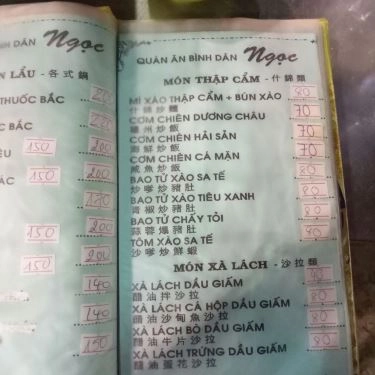 ÌNH DÂN Ngọc
N LẨU - 各式鍋
THUỐC BẮC 200
C BẮC
150 200
ẮC 150 200
180
150 200
150 200
140
140
150
QUÁN ĂN BÌNH DÂN Ngọc
MÓN THẬP CẨM - 什錦類
MÌ XÀO THẬP CẨM + BÚN XÀO 80
什錦炒麵
CƠM CHIÊN DƯƠNG CHÂU 70
楊州炒飯
CƠM CHIÊN HẢI SẢN 70
海鮮炒飯
CƠM CHIÊN CÁ MẶN 70
咸魚炒飯
BAO TỬ XÀO SA TẾ 80
炒爹炒豬肚
BAO TỬ XÀO TIÊU XANH 80
青椒炒豬肚
BAO TỬ CHÁY TỎI 80
蒜蓉爆豬肚
TÔM XÀO SA TẾ 80
沙爹炒鮮蝦
MÓN XÀ LÁCH - 沙拉類
XÀ LÁCH DẦU GIẤM
醋油拌沙拉
XÀ LÁCH CÁ HỘP DẦU GIẤM 80
醋油沙甸魚沙拉
XÀ LÁCH BÒ DẦU GIẤM 80
醋油牛片沙拉
XÀ LÁCH TRỨNG DẦU GIẤM 80
醋油蛋花沙拉